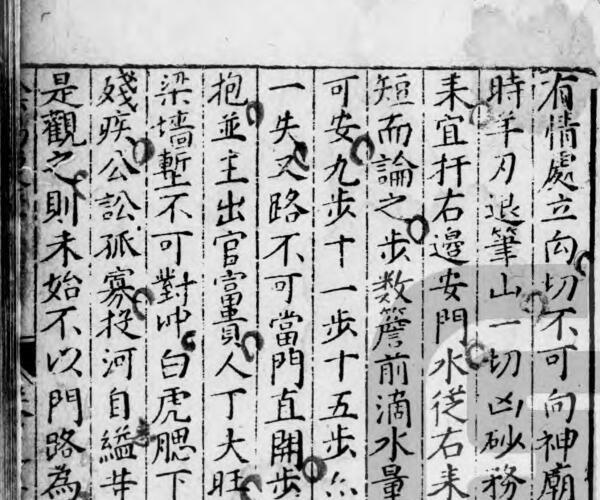 有情處立向切不可向神廟
時羊刃退筆山一切凶砂務
来宜扦右邉安門水從右来
短而論之步数簷前滴水量
可安九步十一步十五步
一失又路不可當門直開步
抱並主出官富貴人丁大旺
梁墻塹不可對冲白虎腮下
殘疾公訟孤寡投河自縊井
是觀之則未始不以門路為